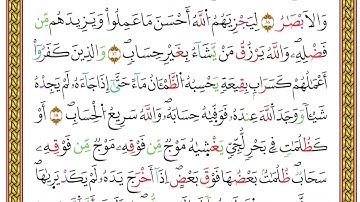 وَالْأَبْصَٰرُ ۝٣٧ لِيَجْزِيَهُمُ اللَّهُ أَحْسَنَ مَا عَمِلُوا۟ وَيَزِيدَهُم مِّن
فَضْلِهِۦ ۗ وَاللَّهُ يَرْزُقُ مَن يَشَآءُ بِغَيْرِ حِسَابٍ ۝٣٨ وَالَّذِينَ كَفَرُوٓا۟
أَعْمَٰلُهُمْ كَسَرَابٍۭ بِقِيعَةٍ يَحْسَبُهُ الظَّمْـَٔانُ مَآءً حَتَّىٰٓ إِذَا جَآءَهُۥ لَمْ يَجِدْهُ
شَيْـًٔا وَوَجَدَ اللَّهَ عِندَهُۥ فَوَفَّىٰهُ حِسَابَهُۥ ۗ وَاللَّهُ سَرِيعُ الْحِسَابِ ۝٣٩ أَوْ
كَظُلُمَٰتٍ فِى بَحْرٍ لُّجِّىٍّ يَغْشَىٰهُ مَوْجٌ مِّن فَوْقِهِۦ مَوْجٌ مِّن فَوْقِهِۦ
سَحَابٌ ۚ ظُلُمَٰتٌۢ بَعْضُهَا فَوْقَ بَعْضٍ إِذَآ أَخْرَجَ يَدَهُۥ لَمْ يَكَدْ يَرَىٰهَا ۗ